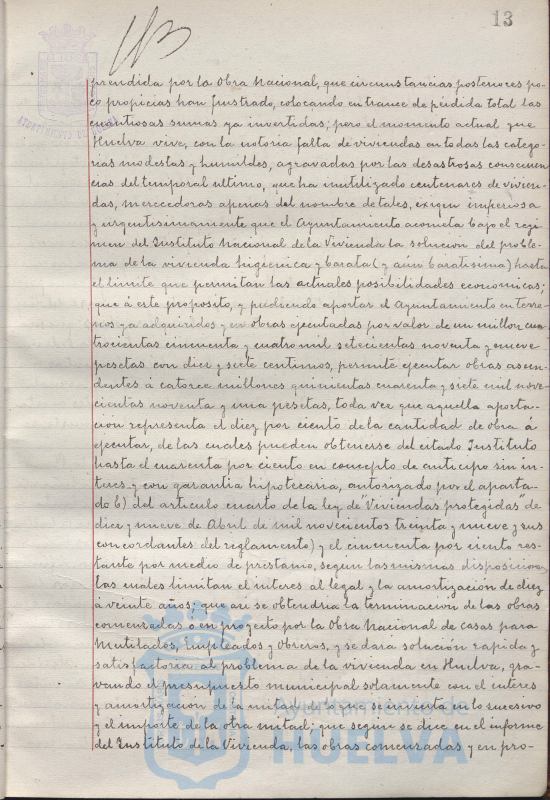 13
prendida por la Obra Nacional, que circunstancias posteriores po-
co propicias han frustrado, colocando en trance de pérdida total las
cuantiosas sumas ya invertidas; pero el momento actual que
Huelva vive, con la notoria falta de viviendas en todas las catego-
rias modestas y humildes, agravadas por las desastrosas consecuen-
cias del temporal ultimo, que ha inutilizado centenares de vivien-
das, merecedoras apenas del nombre de tales, exigen imperiosa
y urgentisimamente que el Ayuntamiento acometa bajo el regi-
men del Instituto Nacional de la Vivienda la solucion del proble-
ma de la vivienda higienica y barata (y aún baratisima) hasta
el limite que permitan las actuales posibilidades economicas;
que á este proposito, y pudiendo aportar el Ayuntamiento en terre-
nos ya adquiridos y en obras ejecutadas por valor de un millon cua-
trocientas cincuenta y cuatro mil setecientas noventa y nueve
pesetas con diez y siete centimos, permite ejecutar obras ascen-
dentes á catorce millones quinientas cuarenta y siete mil nove-
cientas noventa y una pesetas, toda vez que aquella aporta-
ción representa el diez por ciento de la cantidad de obra á
ejecutar, de las cuales pueden obtenerse del citado Instituto
hasta el cuarenta por ciento en concepto de anticipo sin in-
teres y con garantia hipotecaria, autorizado por el aparta-
do b) del articulo cuarto de la ley de "Viviendas protegidas" de
diez y nueve de Abril de mil novecientos treinta y nueve y sus
concordantes del reglamento) y el cincuenta por ciento res-
tante por medio de prestamo, segun las mismas disposiciones,
las cuales limitan el interes al legal y la amortización de diez
á veinte años; que asi se obtendria la terminacion de las obras
comenzadas o en proyecto por la Obra Nacional de casas para
Mutilados, Empleados y Obreros, y se dara solución rapida y
satisfactoria al problema de la vivienda en Huelva, gra-
vando el presupuesto municipal solamente con el interes
y amortización de la mitad de lo que se invierta en lo sucesivo
y el importe de la otra mitad; que segun se dice en el informe
del Instituto de la Vivienda, las obras comenzadas y en pro-
Ayuntamiento de
HUELVA